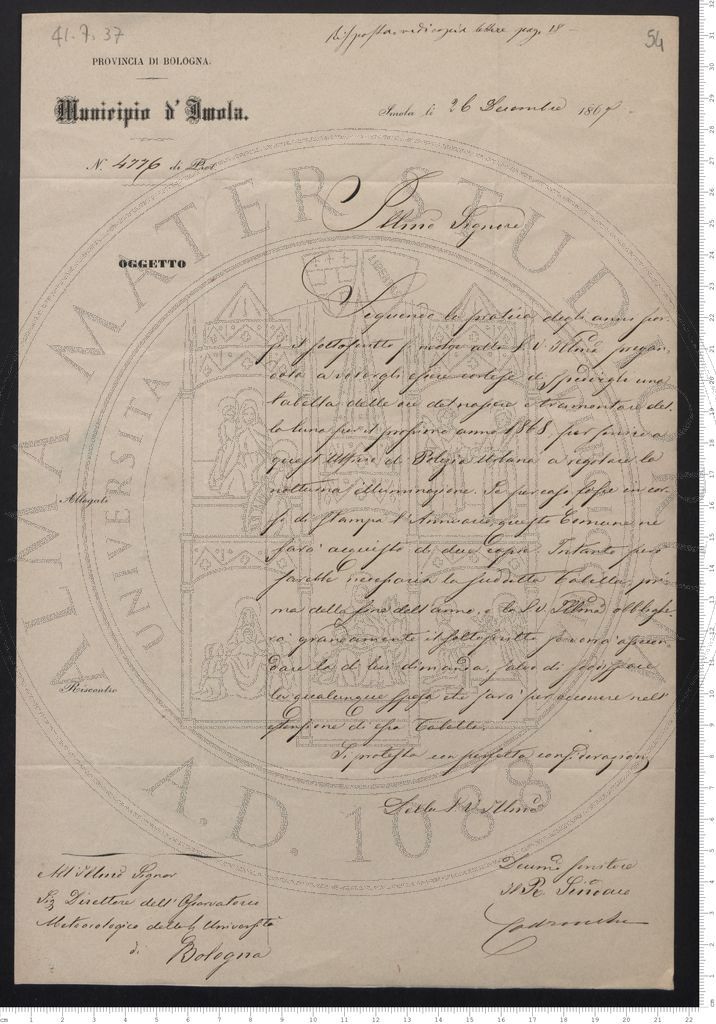 41. 7. 37
Risposta vedi copia lettere pag. 18
54
PROVINCIA DI BOLOGNA.
Municipio d'Imola.
Imola li 26 Decembre 1867
N. 4776 di Prot.
Illmo Signore
OGGETTO
Seguendo la pratica degli anni scor-
si il sottoscritto si rivolge alla S. V. Illma pregan-
dola a volergli essere cortese di spedirgli una
tabella delle ore del nascere e tramontare del-
la luna per il prossimo anno 1868 per norma a
quest'Uffizio di Polizia Urbana a regolare la
notturna illuminazione. Se per caso fosse in cor-
so di stampa l'Annuario, questo Comune ne
farà acquisto di due copie. Intanto però
sarebbe necessaria la suddetta Tabella pri-
ma della fine dell'anno, e la S. V. Illma obblighe-
rà grandemente il sottoscritto se vorrà assecon-
dare la di lui dimanda, salvo di
la qualunque spesa che sarà per occorrere nell'
estensione di essa Tabella.
Si protesta con perfetta considerazione
Della S. V. Illma
Allegati
Riscontro
All'Illmo Signor
Sig. Direttore dell'Osservatorio
Meteorologico della R. Università
di Bologna
Devmo servitore
Il R. Sindaco
Codronchi
ALMA MATER STUDIORUM
UNIVERSITA
A.D. 1088